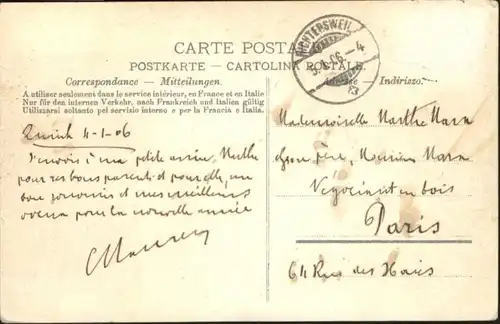 CARTE POSTALE
POSTKARTE - CARTOLINA POSTALE
Correspondance - Mitteilungen. Adresse - Indirizzo.
A utiliser seulement dans le service intérieur, en France et en Italie
Nur für den internen Verkehr, nach Frankreich und Italien gültig
Utilizzarsi soltanto pel servizio interno e per la Francia e l'Italia.
RICHTERSWEIL
06.-4
Zurich 4-1-06
J'envoie à ma petite amie, Marthe
pour ses bons parents et pour elle, un
bon souvenir et mes meilleurs
voeux pour la nouvelle année
Mademoiselle Marthe
chez son père, Monsieur
Négociant en bois
Paris
64 Rue des